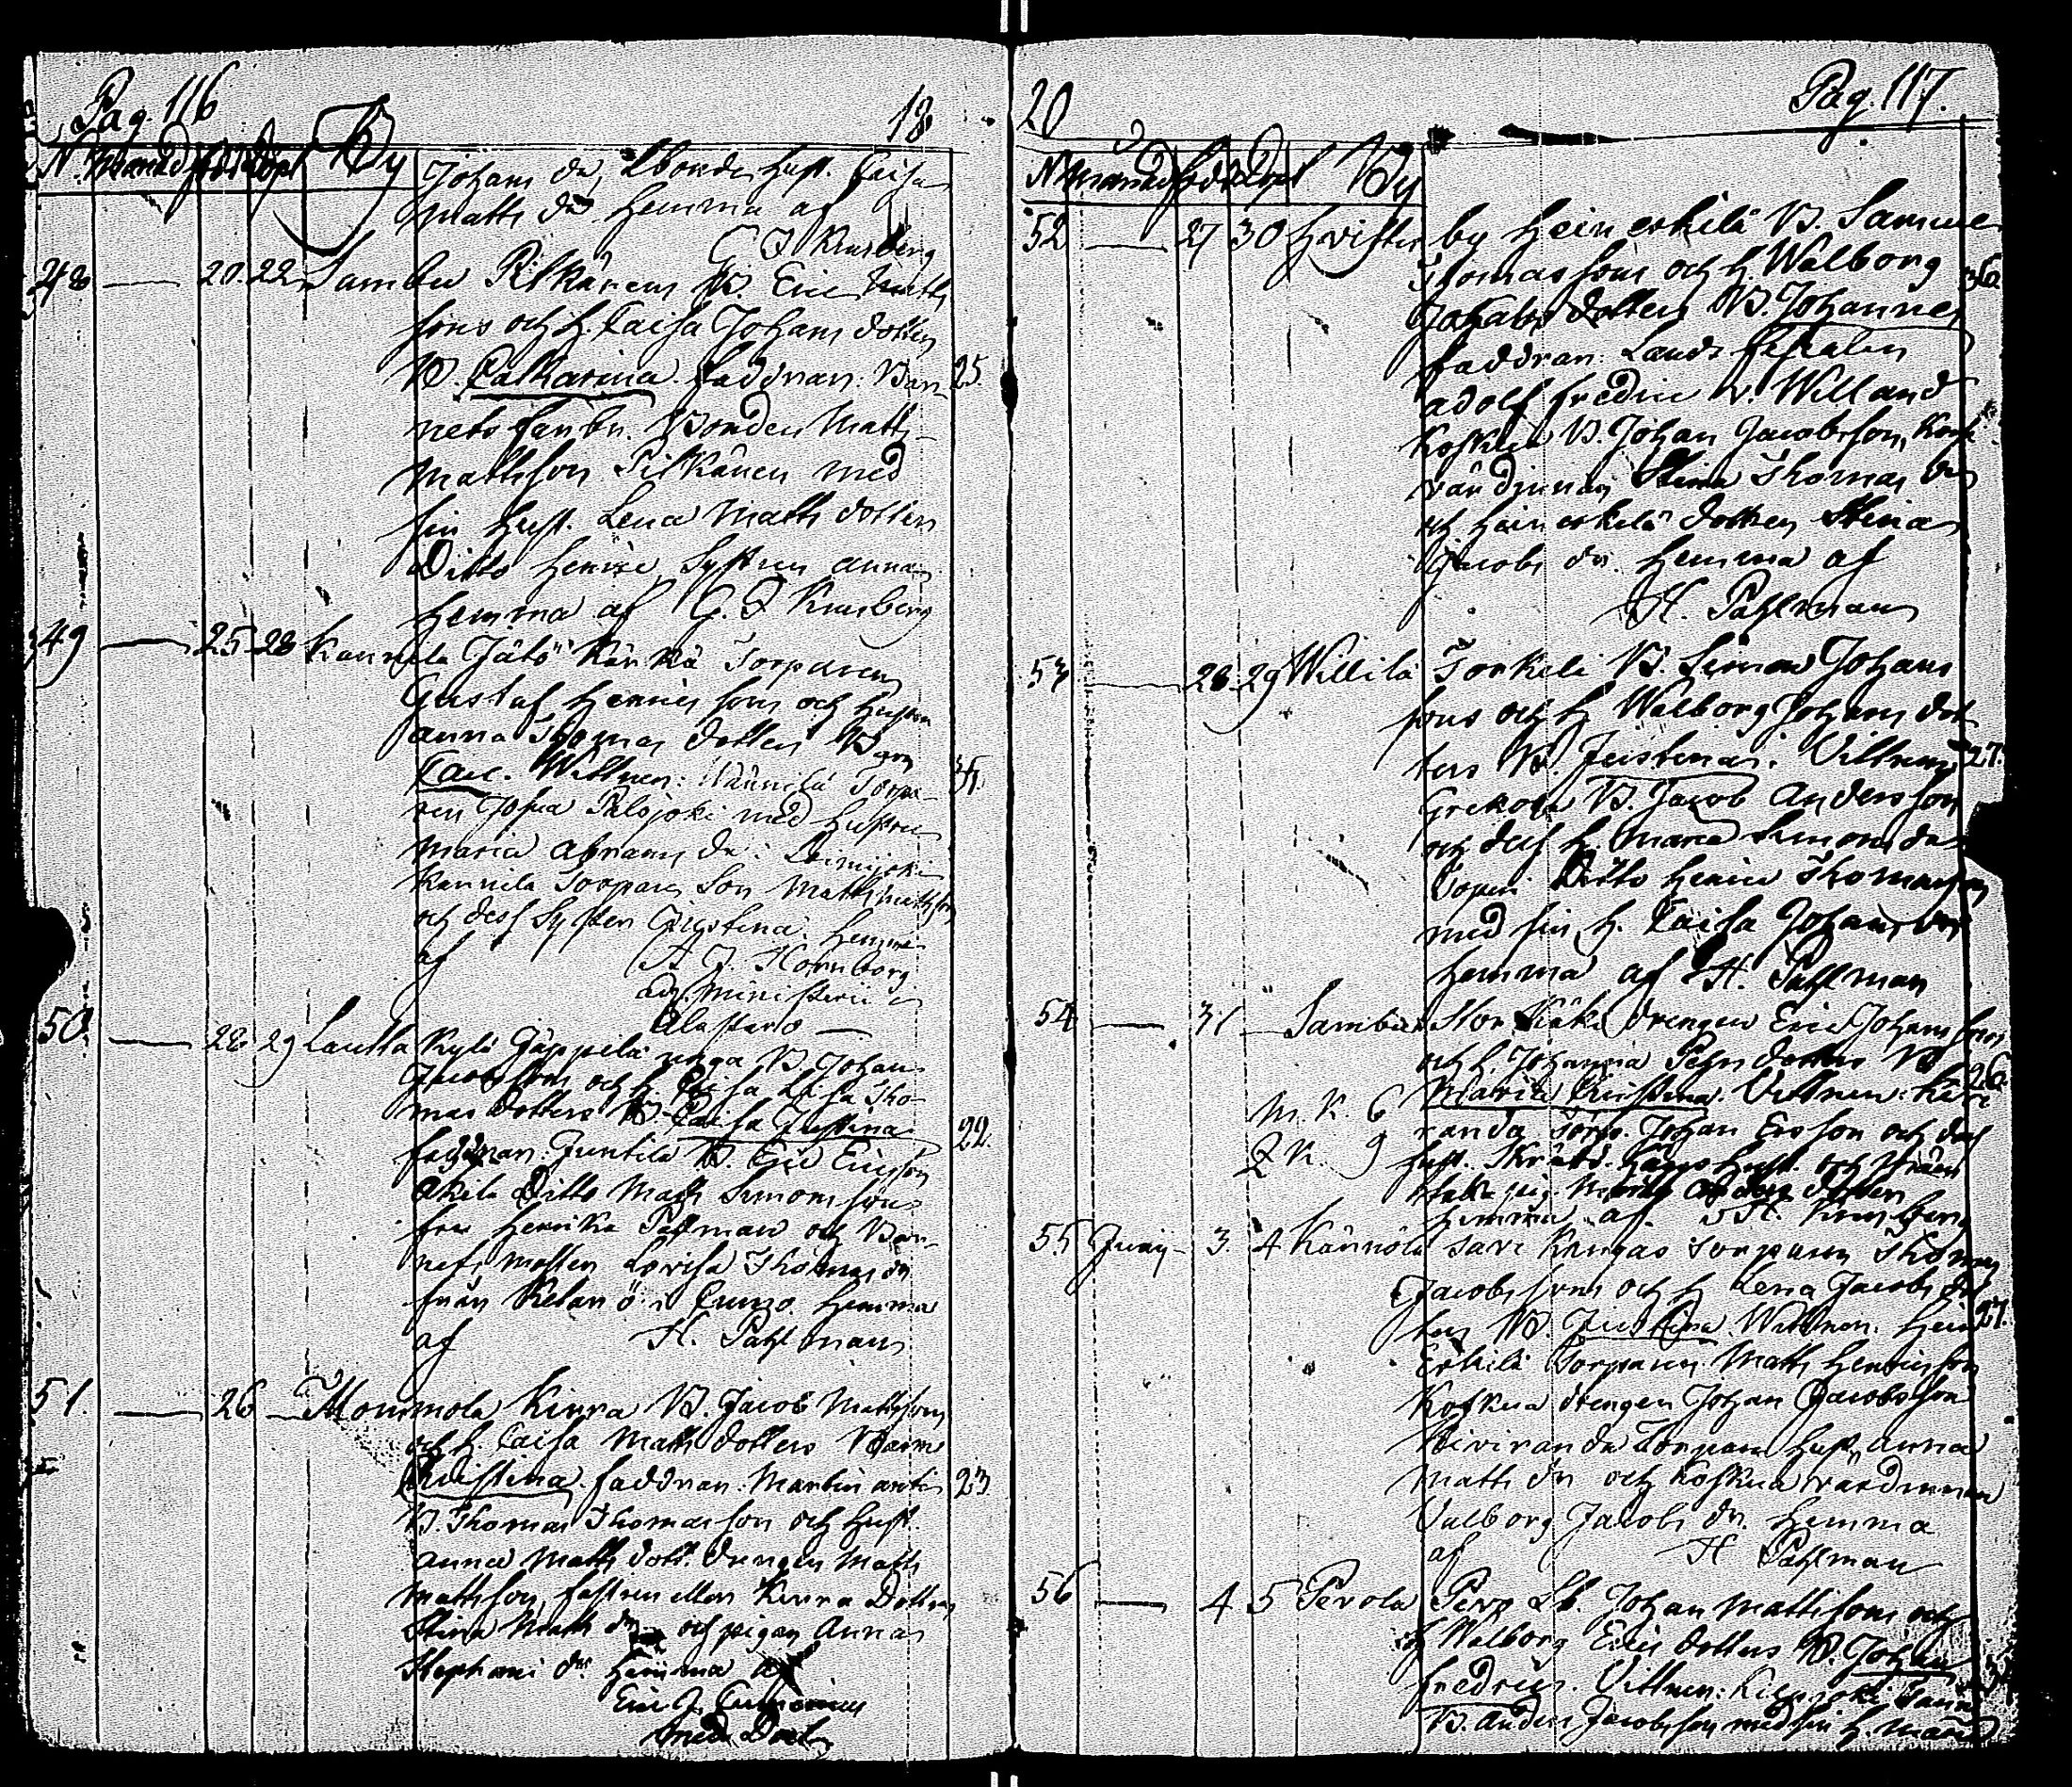 Pag. 116 18
N. Månad född döpt By
Johans dr, Lbonde hust. Caisa
Matts dr hemma af
G. I Krusberg
48 — 20. 22 Sambu Pilkänen B. Eric Matts
sons och h. Caisa Johans dotters
B. Catharina. faddrar: Bar- 25.
nets farbr. Bonden Matts
Mattsson Pilkänen med
sin hust. Lena Matts dotter
Ditto Henric Systren Anna
hemma af G. I Krusberg
49 — 25 28 Kannila Jätö Torparen
Gustaf Henrics sons och hustr
Anna Thomas dotters Barn
Carl. Wittnen: Männilä Torpa- 31.
ren Josua Palojoki med hustru
Maria Abrams dr: Loimijoki
Kannila Torpare Son Matts Mattsson
och dess Syster Christina. hemma
af A. J. Hornborg
adj. Ministerii i
Alastaro —
50. — 28 29 Lautta Kylä Jäppilä unga B. Johan
Jacobsons och h Caisa Lisa Tho-
mas dotters B. Caisa Justina 22.
faddrar: Juntila B. Eric Ericsson
Akila Ditto Matts Simonsson
fru Henrika Pahlman och Bar-
nets moster Lovisa Thomas dr
från Ketarö i Cumo hemma
af H. Pahlman
51. — 26 — Mommola Kirra B. Jacob Mattssons
och h. Caisa Matts dotters Barn
Christina. faddrar: Martin antti 23
B. Thomas Thomasson och hust.
Anna Matts dott. drengen Matts
Mattsson, Kirra Dotter
Stina Matts dr och pigan Anna
Stephani dr. hemma af
Eric J.
Med. Doct.
20 Pag. 117.
N månad född döpt By
52 — 27 30 Hvitis by Heinerkilä B. Samuel
Thomassons och h. Walborg 36.
Jakabs dotters B. Johannes
faddrar: Lands fiskalen
Adolf Fredric v. Willand
Koskua B. Johan Jacobsson, Kosk
värdinnan Stina Thomas dr
och Heinerkilä dottren Stina
Jacobs dr. hemma af
H. Pahlman
53 — 28 29 Willilä Torkeli B. Simon Johans
sons och h Walborg Johans dot
ters B. Justina. Vittnen: 27.
Grekola B. Jacob Andersson
och dess h. Maria Simons dr
Ditto Henric Thomasson
med sin h. Caisa Johans dr
hemma af H. Pahlman
54 — 31 — Sambu Stor drengen Eric Johanssons
och h. Johanna Pehrs dotters B 26.
Maria Christina. Vittnen: Kivi
M. K. 6 randa Torp. Johan Ersson och dess
Q K. 9 hust. och
pig. Maria dotter
hemma af. Krusberg
55 Junij — 3. 4 Kännölä Savi Kangas Torparen Thomas
Jacobssons och h Lena Jacobs dot
ters B Justina. Wittnen: Hein 27.
Erkilä Torparen Matts Henricsson
Koskua drengen Johan Jacobsson
Kiviranda Torpare hust. Anna
Matts dr och Koskua värdinnan
Valborg Jacobs dr. hemma
af H Pahlman
56 — 4 5 Perola Pero Lb. Johan Mattssons och
h Walborg Erics dotters B. Johan
Fredric. Vittnen:
B. Anders Jacobsson med sin h. Maria